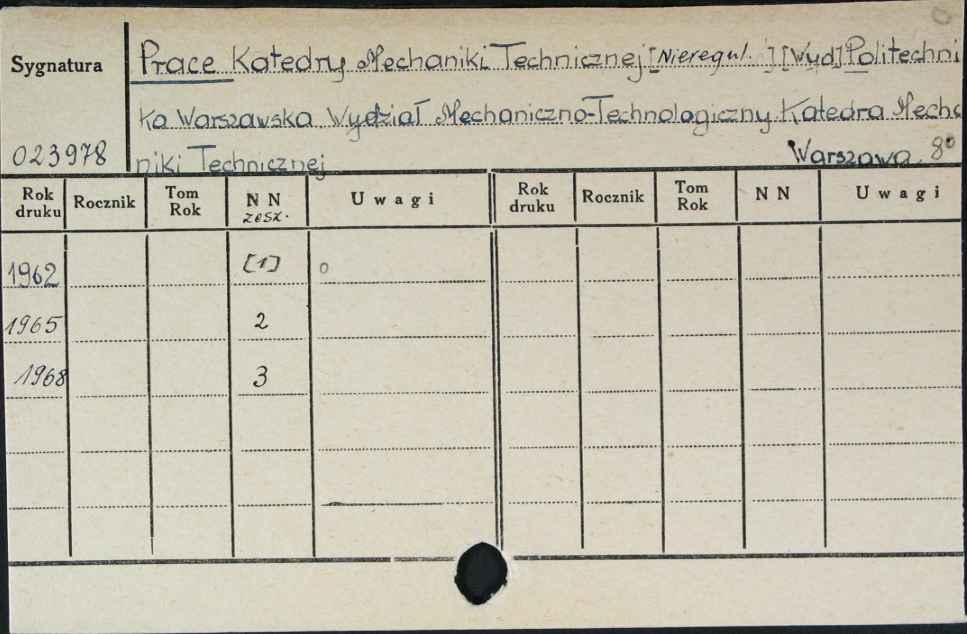 Sygnatura
Prace Katedry Mechaniki Technicznej [Nieregul.] [Wyd] Politechni
ka Warszawska Wydział Mechaniczno-Technologiczny Katedra Mecha
023978
niki Technicznej Warszawa 8°
Rok druku Rocznik Tom Rok N N zesz. Uwagi Rok druku Rocznik Tom Rok N N Uwagi
1962 [1]
1965 2
1968 3